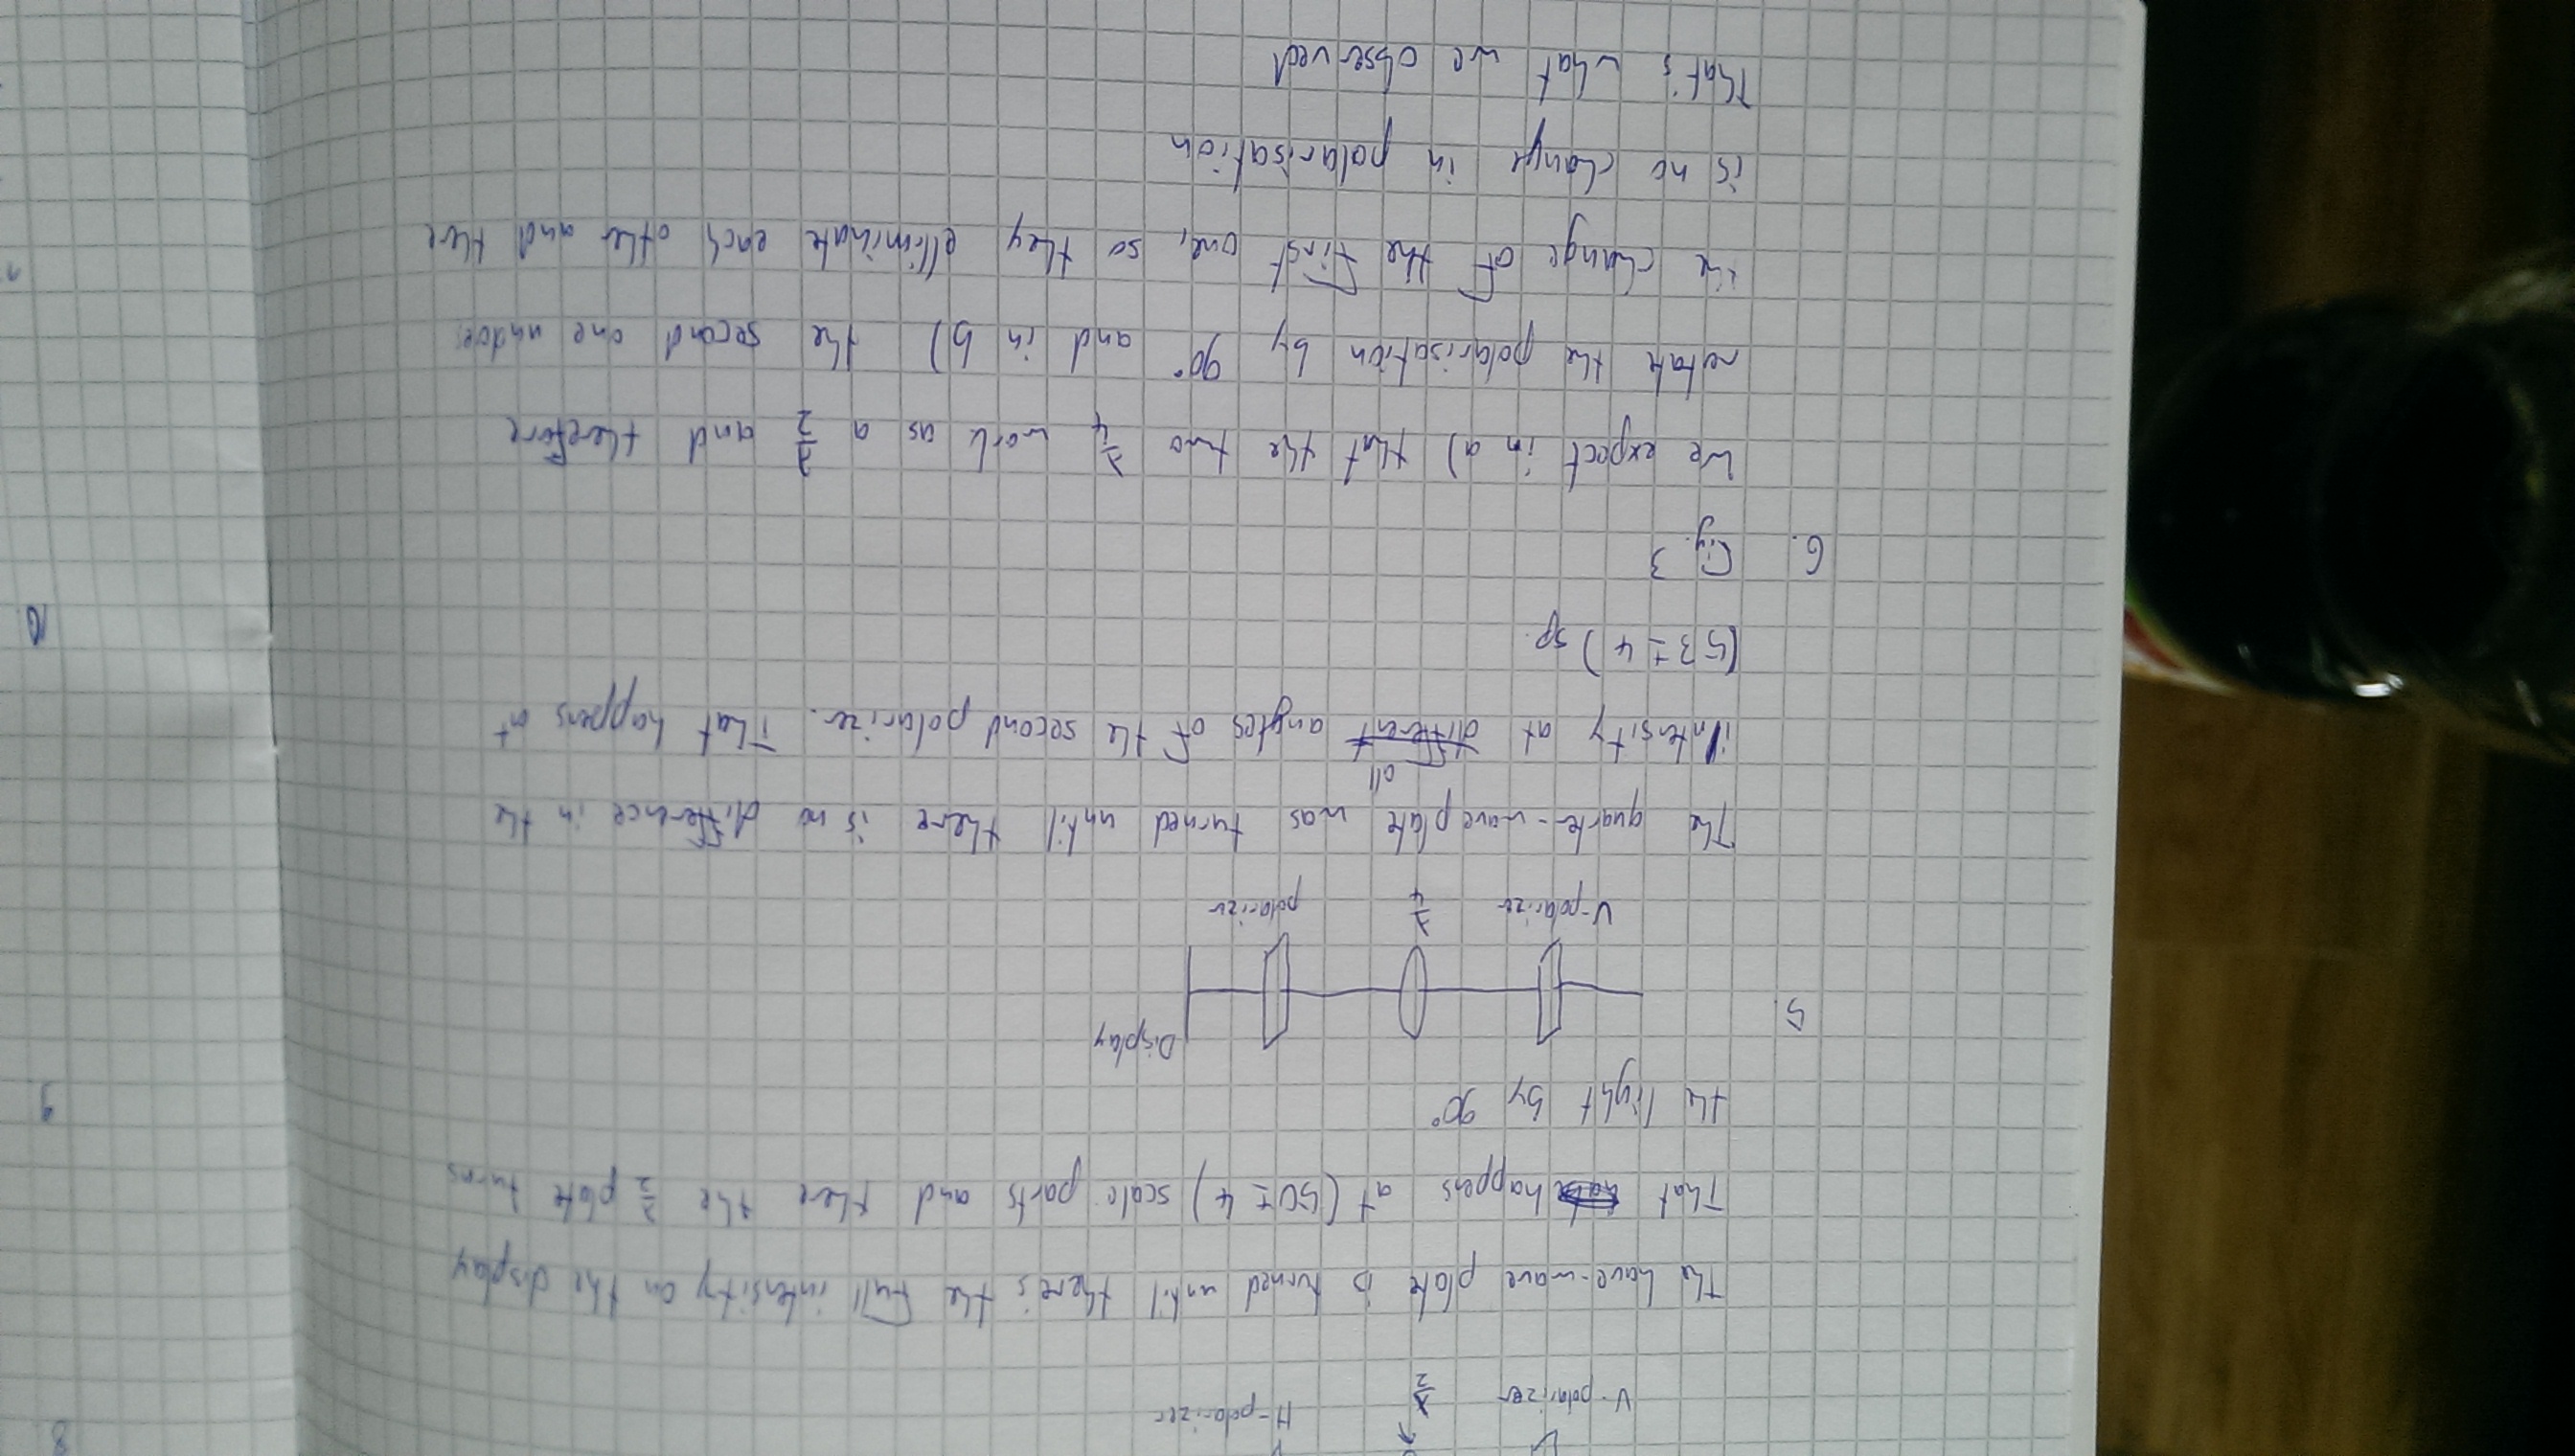 V-polarizer λ/2 H-polarizer
The have-wave plate is turned until there's the full intensity on the display
That happens at (50 ± 4) scale parts and there the λ/2 plate turns
the light by 90°
5.
Display
V-polarizer λ/4 polarizer
The quarter-wave plate was turned until there is no difference in the
all
intensity at different angles of the second polarizer. That happens at
(53 ± 4) sp.
6. Fig. 3
We expect in a) that the two λ/4 work as a λ/2 and therefore
rotate the polarisation by 90° and in b) the second one undoes
the change of the first one, so they elliminate each other and there
is no change in polarisation
That's what we observed
8.
9.
10.